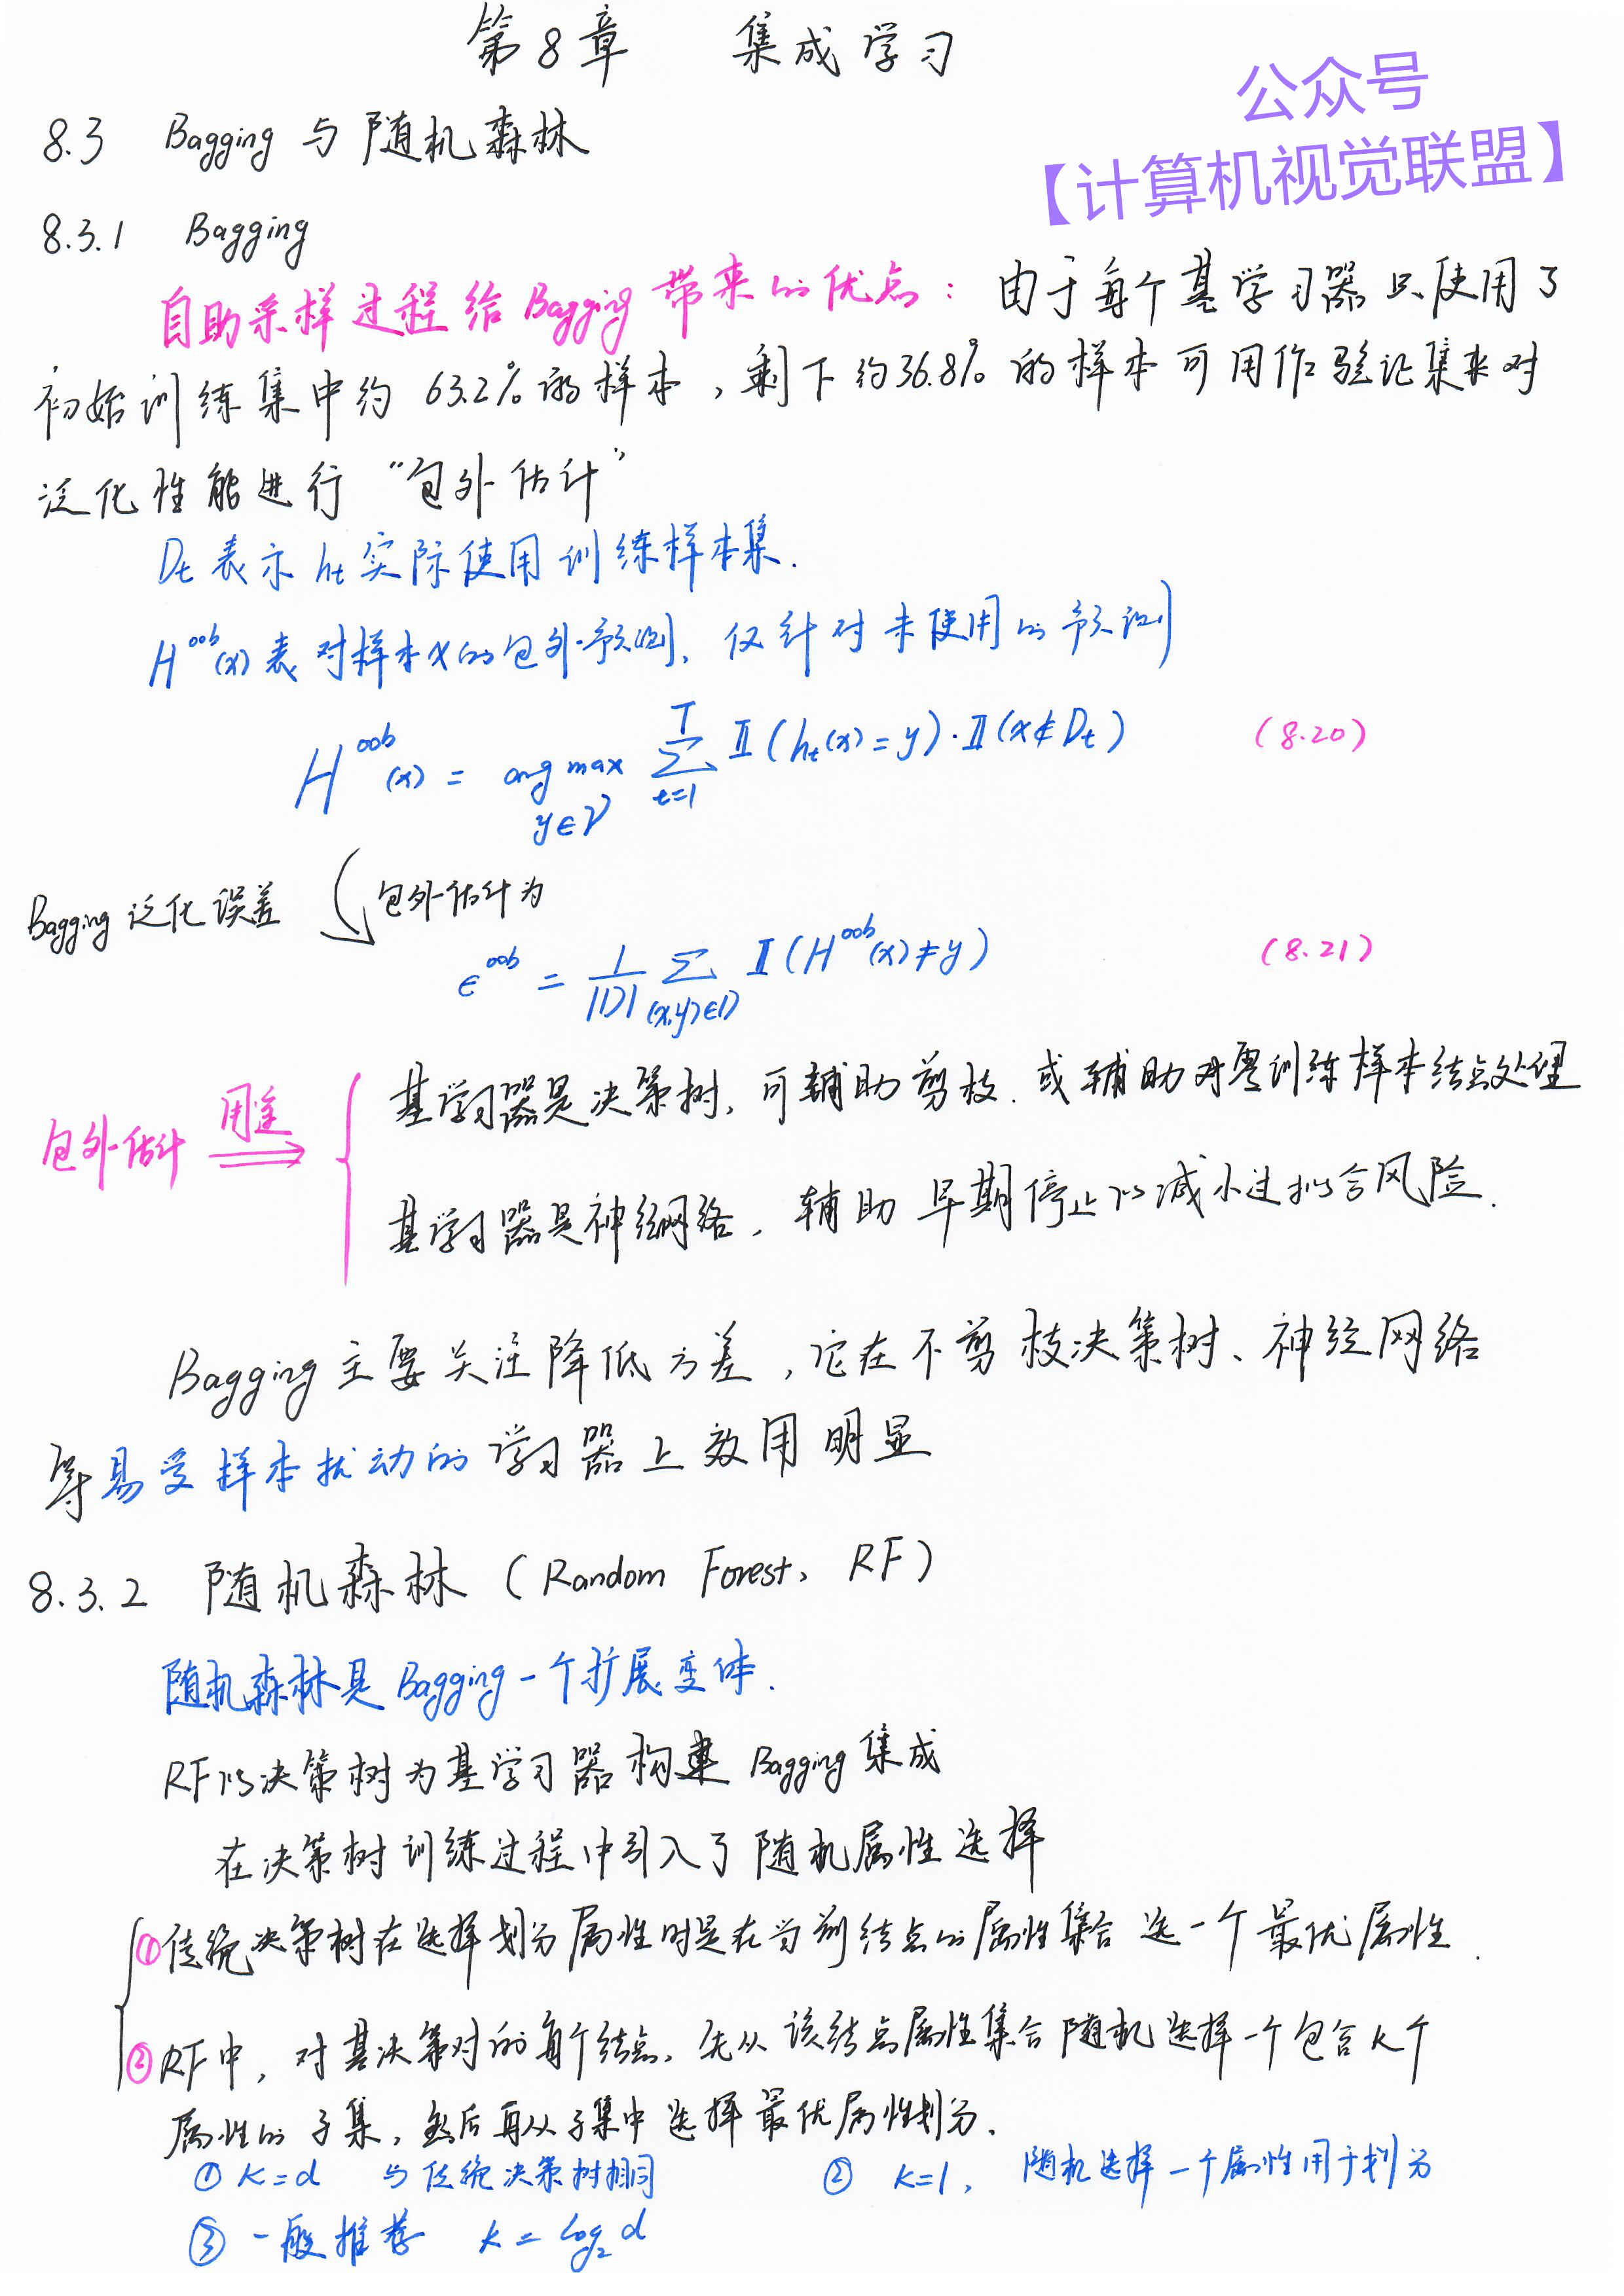 第8章 集成学习
公众号
【计算机视觉联盟】
8.3 Bagging与随机森林
8.3.1 Bagging
自助采样过程给Bagging带来的优点：由于每个基学习器只使用了
初始训练集中约63.2%的样本，剩下约36.8%的样本可用作验证集来对
泛化性能进行“包外估计”
Dt表示ht实际使用训练样本集.
H^oob(x)表对样本x的包外预测，仅针对未使用的预测
H^oob(x) = arg max_{y∈𝒴} Σ_{t=1}^{T} 𝕀(h_t(x)=y)·𝕀(x∉D_t) (8.20)
Bagging泛化误差 包外估计为
ϵ^oob = 1/|D| Σ_{(x,y)∈D} 𝕀(H^oob(x)≠y) (8.21)
包外估计 用途 ⇒
基学习器是决策树，可辅助剪枝.或辅助对零训练样本结点处理
基学习器是神经网络，辅助早期停止以减小过拟合风险.
Bagging主要关注降低方差，它在不剪枝决策树、神经网络
等易受样本扰动的学习器上效用明显
8.3.2 随机森林（Random Forest，RF）
随机森林是Bagging一个扩展变体.
RF以决策树为基学习器构建Bagging集成
在决策树训练过程中引入了随机属性选择
①传统决策树在选择划分属性时是在当前结点的属性集合选一个最优属性.
②RF中，对基决策对的每个结点，先从该结点属性集合随机选择一个包含k个
属性的子集，然后再从子集中选择最优属性划分.
① k=d 与传统决策树相同 ② k=1，随机选择一个属性用于划分
③ 一般推荐 k=log₂d